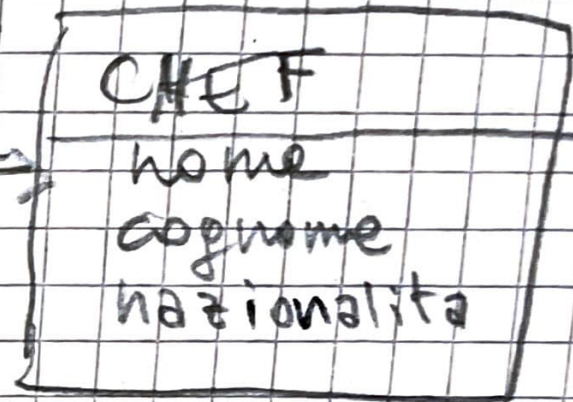 CHEF
nome
cognome
nazionalita